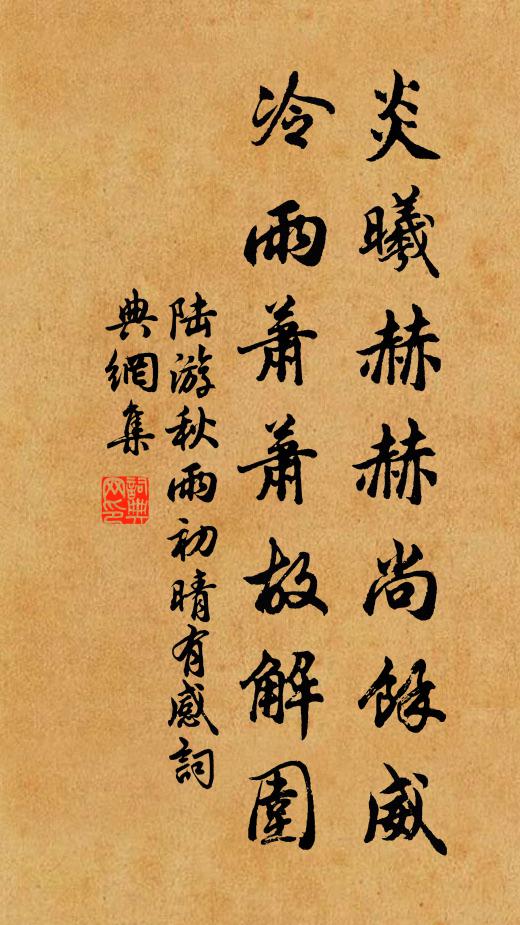 炎曦赫赫尚餘威
冷雨蕭蕭故解圍
陆游秋雨初晴有感詞
典網集
詞典網印